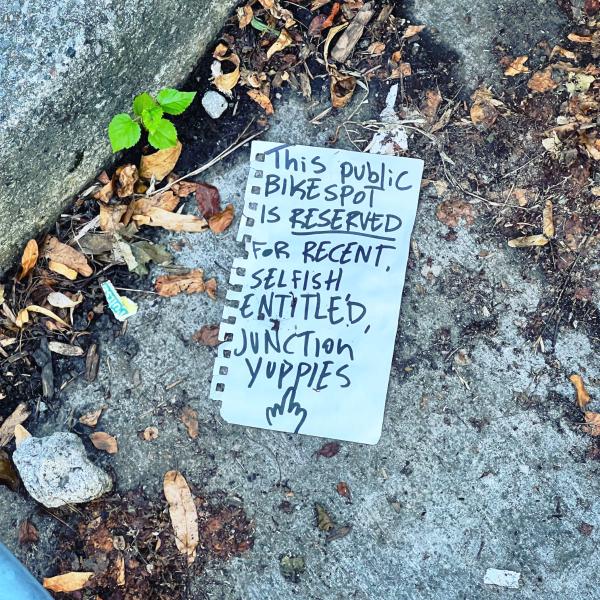 This public
BIKE SPOT
IS RESERVED
FOR RECENT,
SELFISH
ENTITLED,
JUNCTION
YUPPIES